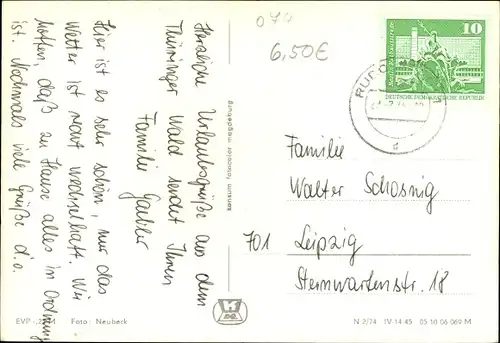 Herzliche Urlaubsgrüße aus dem
Thüringer Wald sendet Ihnen
Familie Gabler
Hier ist es sehr schön, nur das
Wetter ist recht wechselhaft. Wir
hoffen, daß zu Hause alles in Ordnung
ist. Nochmals viele Grüße d.o.
074
6,50€
10
DEUTSCHE DEMOKRATISCHE REPUBLIK
Familie
Walter Schosnig
701 Leipzig
Sternwartenstr. 18
EVP
Foto: Neubeck
N 2/74 IV-14-45 05 10 06 069 M